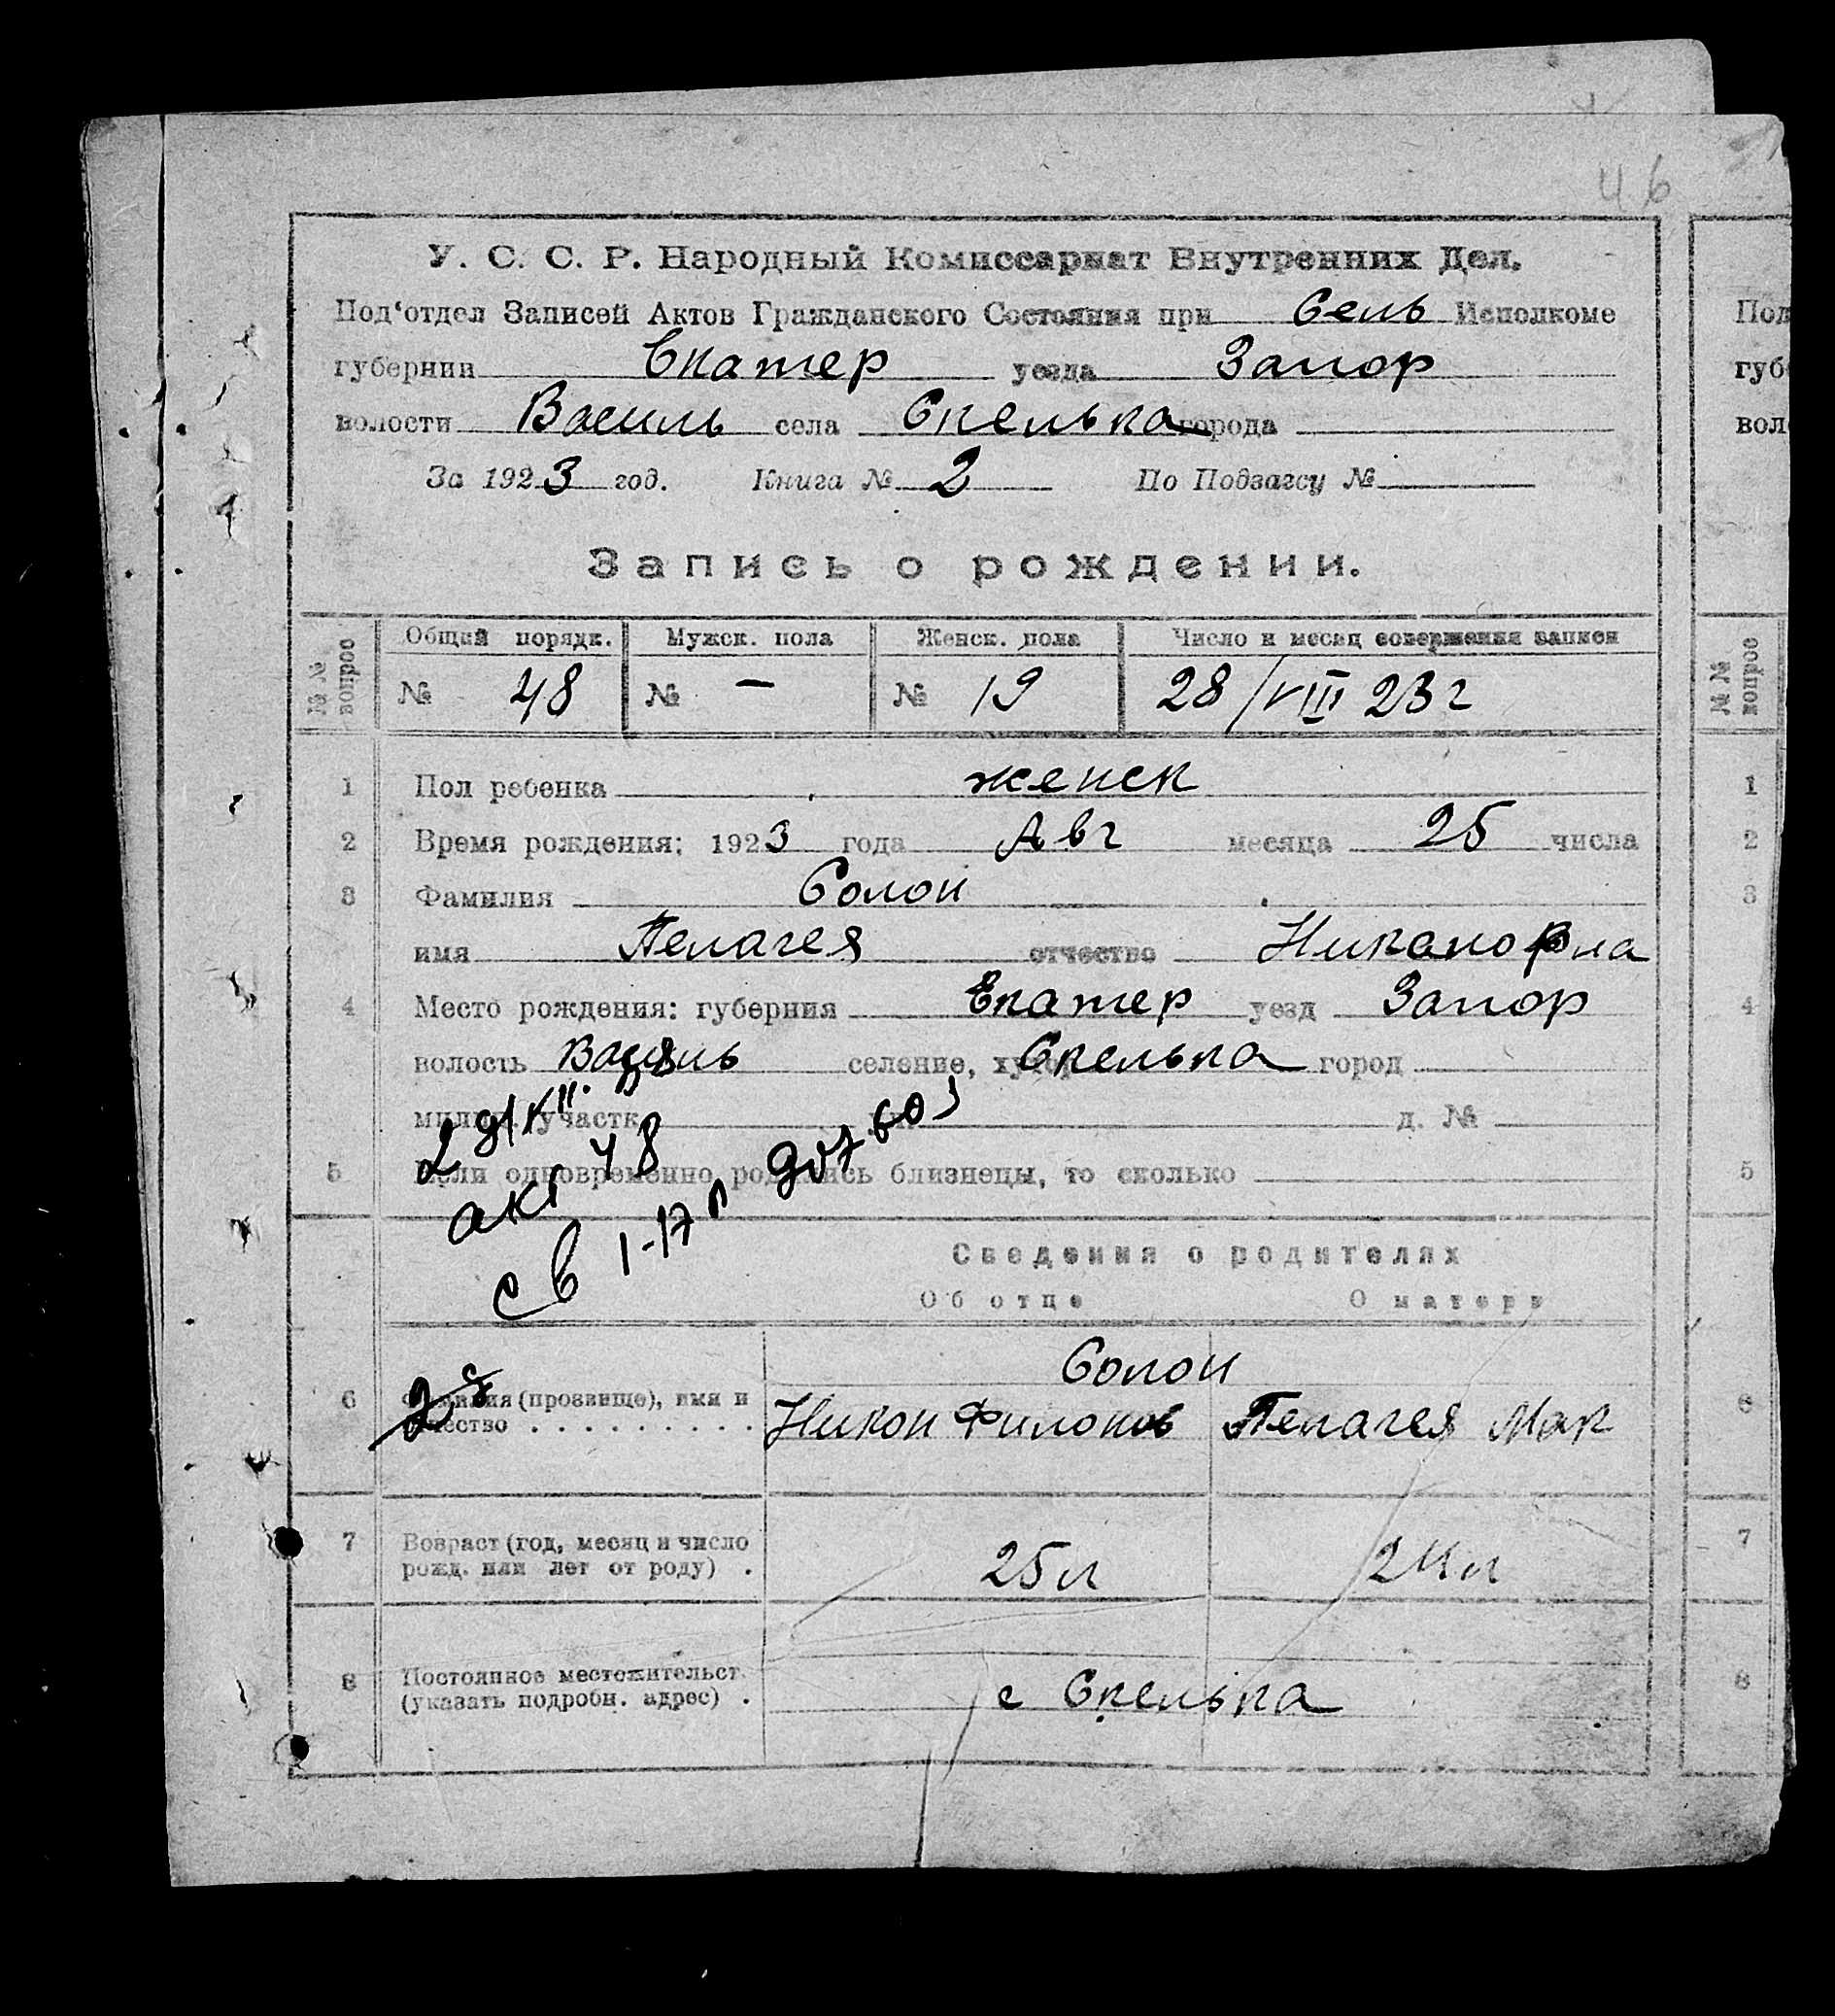 46
У. С. С. Р. Народный Комиссариат Внутренних Дел.
Под‘отдел Записей Актов Гражданского Состояния при Сель Исполкоме
губернии Екатер уезда Запор
волости Василь села Скелька города
За 1923 год. Книга № 2 По Подзагсу №
Запись о рождении.
№ № вопрос
Общий порядк. Мужск. пола Женск. пола Число и месяц совершения записи
№ 48 № — № 19 28/VIII 23 г
1 Пол ребенка женск
2 Время рождения: 1923 года Авг месяца 25 числа
3 Фамилия Солон
имя Пелагея отчество
4 Место рождения: губерния Екатер уезд Запор
волость Василь селение, Скелька город
участк д. №
акт 48
5 одновременно близнецы, то сколько
св 1-17
Сведения о родителях
Об отце О матери
Солон
6 (прозвище), имя и Никон Филонов Пелагея Мак
7 Возраст (год, месяц и число
рожд. или лет от роду) . 25 л 24 л
8 Постоянное местожительст.
(указать подробн. адрес) . с Скелька
Под
губ
вол
№ № вопрос
1
2
3
4
5
6
7
8